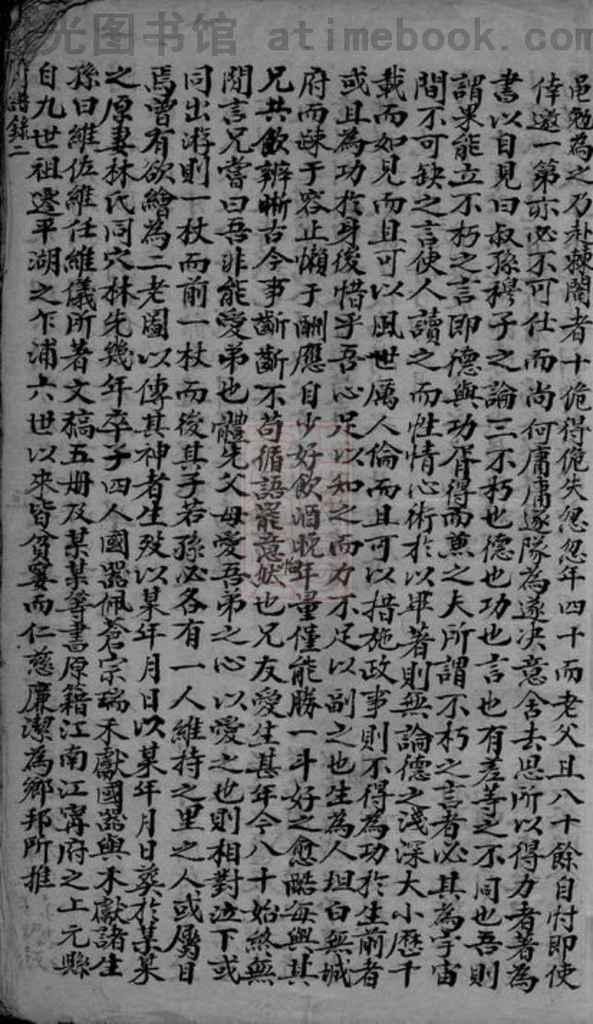 光图书馆 atimebook.com
邑勉為之乃赴棘闈者十佹得佹失忽忽年四十而老父且八十餘自忖即使
倖邀一第亦必不可仕而尚何庸庸逐隊為遂決意舍去思所以得力者著為
書以自見曰叔孫穆子之論三不朽也德也功也言也有差等之不同也吾則
謂果能立不朽之言即德與功胥得而兼之夫所謂不朽之言者必其為宇宙
間不可缺之言使人讀之而性情心術於以畢著則無論德之淺深大小歷千
載而如見而且可以風世厲人倫而且可以措施政事則不得為功於生前者
或且為功於身後惜乎吾心足以知之而力不足以副之也生為人坦白無城
府而疎于容止懶于酬應自少好飲酒晚年量僅能勝一斗好之愈酷每與其
兄共飲辨晰古今事斷斷不苟循語罷意怡然也兄友愛生甚年今八十始終無
間言兄嘗曰吾非能愛弟也體先父母愛吾弟之心以愛之也則相對泣下或
同出游則一杖而前一杖而後其子若孫必各有一人維持之里之人或屬目
焉曾有欲繪為二老圖以傳其神者生歿以某年月日以某年月日葬於某某
之原妻林氏同穴林先幾年卒子四人國器佩蒼宗瑞禾獻國器與禾獻諸生
孫曰維佐維任維儀所著文稿五册及某某等書原籍江南江甯府之上元縣
自九世祖遷平湖之乍浦六世以來皆貧窶而仁慈廉潔為鄉邦所推
錄二